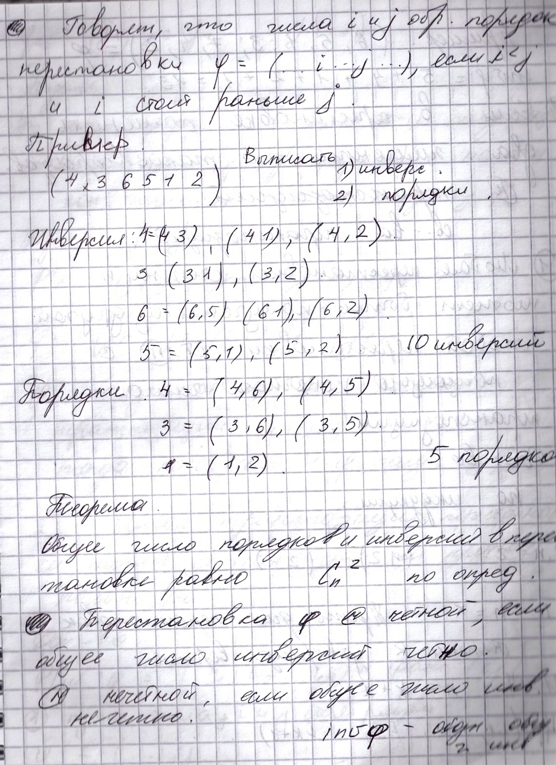 Говорят, что числа i и j обр. порядок
перестановки φ = (.. i ... j ...), если i < j
и i стоит раньше j.
Пример.
(4, 3 6 5 1 2)
Выписать 1) инверс.
2) порядки.
Инверсии: 4 = (4 3), (4 1), (4, 2).
3 (3 1), (3, 2).
6 = (6, 5) (6 1), (6, 2).
5 = (5, 1), (5, 2). 10 инверсий
Порядки. 4 = (4, 6), (4, 5)
3 = (3, 6), (3, 5).
1 = (1, 2). 5 порядко
Теорема.
Общее число порядков и инверсий в перес
тановке равно C_n^2 по опред.
Перестановка φ (н) четной, если
общее число инверсий четно.
(н) нечетной, если общее число инв
нечетно.
inv φ - общ
инв